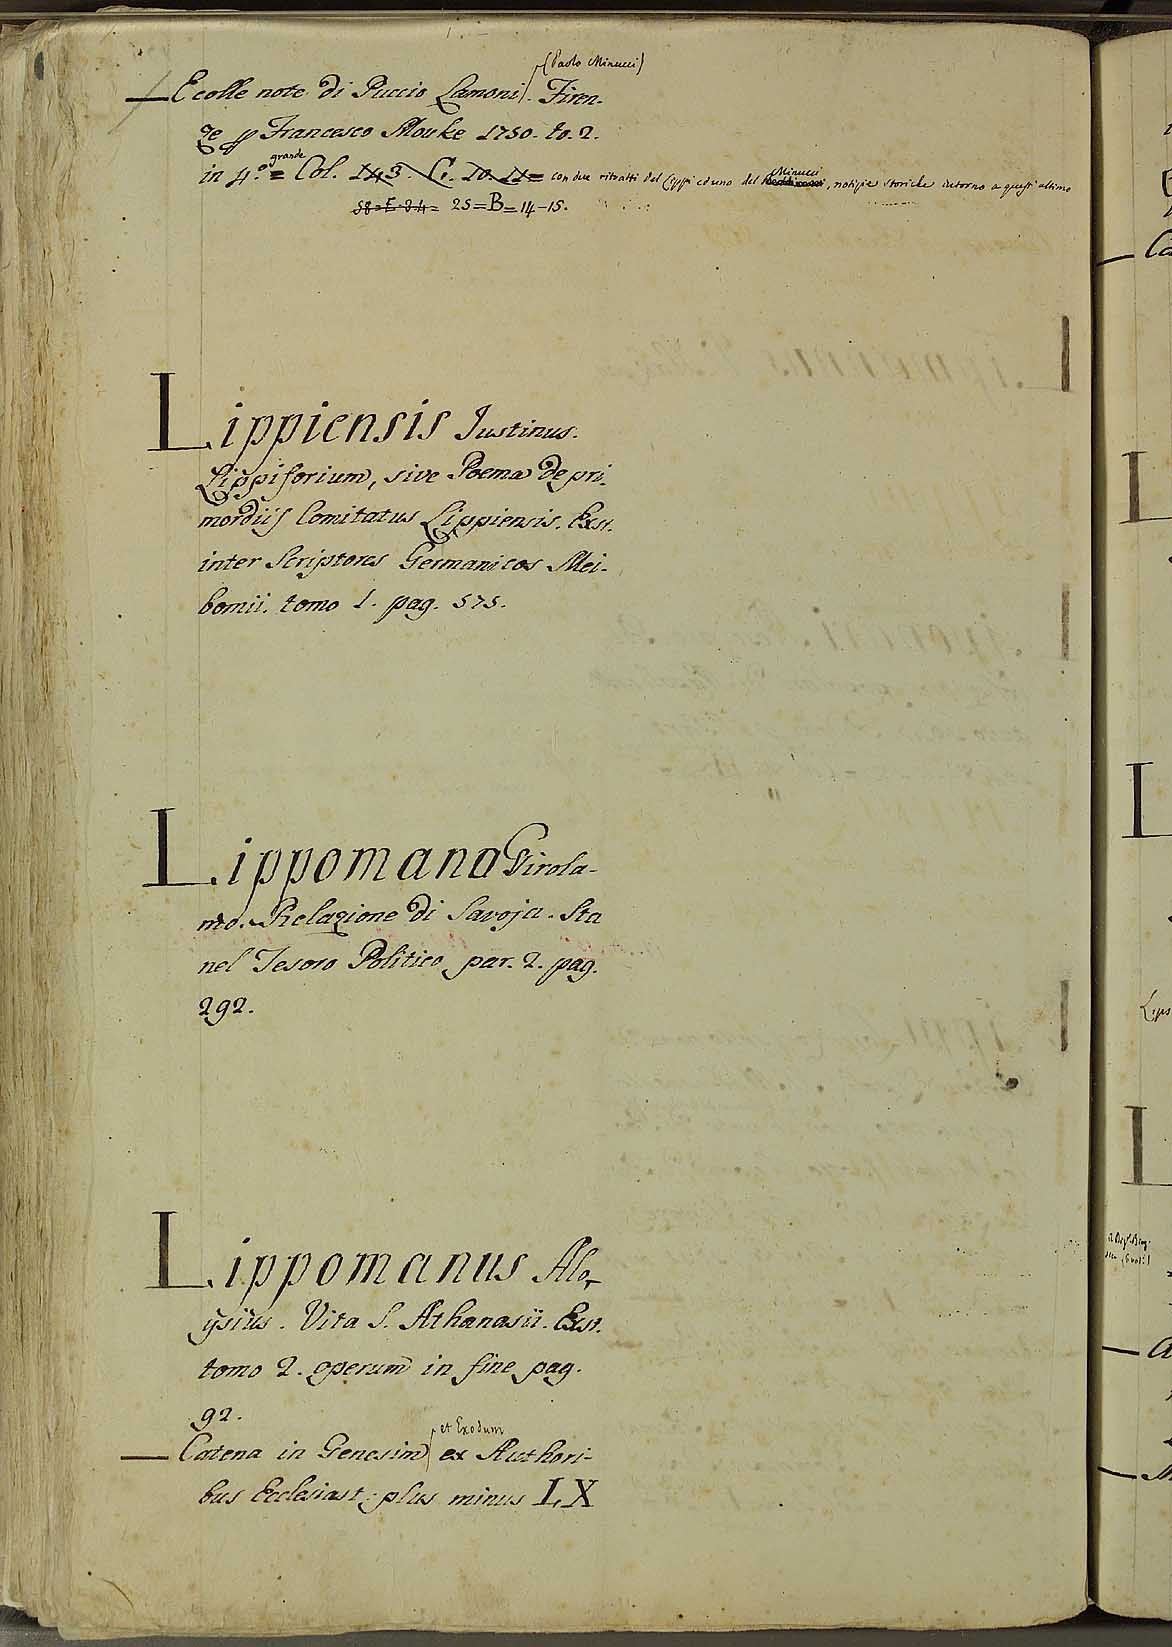 (Paolo Minucci)
— E colle note di Puccio Lamoni. Firen-
ze p Francesco Mouke 1750. to. 2.
in 4.º grande = Col. 143. C. 10. 11 = con due ritratti del Lippi ed uno del Minucci, notizie storiche intorno a quest'ultimo
58=E=34= 25=B=14-15.
Lippiensis Justinus.
Lippiforium, sive Poema de pri-
mordijs Comitatus Lippiensis. Exst.
inter Scriptores Germanicos Mei-
bomii. tomo 1. pag. 575.
Lippomano Girola-
mo. Relazione di Savoja. Sta
nel Tesoro Politico par. 2. pag.
292.
Lippomanus Alo-
ysius. Vita S. Athanasii. Exst.
tomo 2. operum in fine pag.
92.
et Exodum
— Catena in Genesim ex Authori-
bus Ecclesiast: plus minus LX